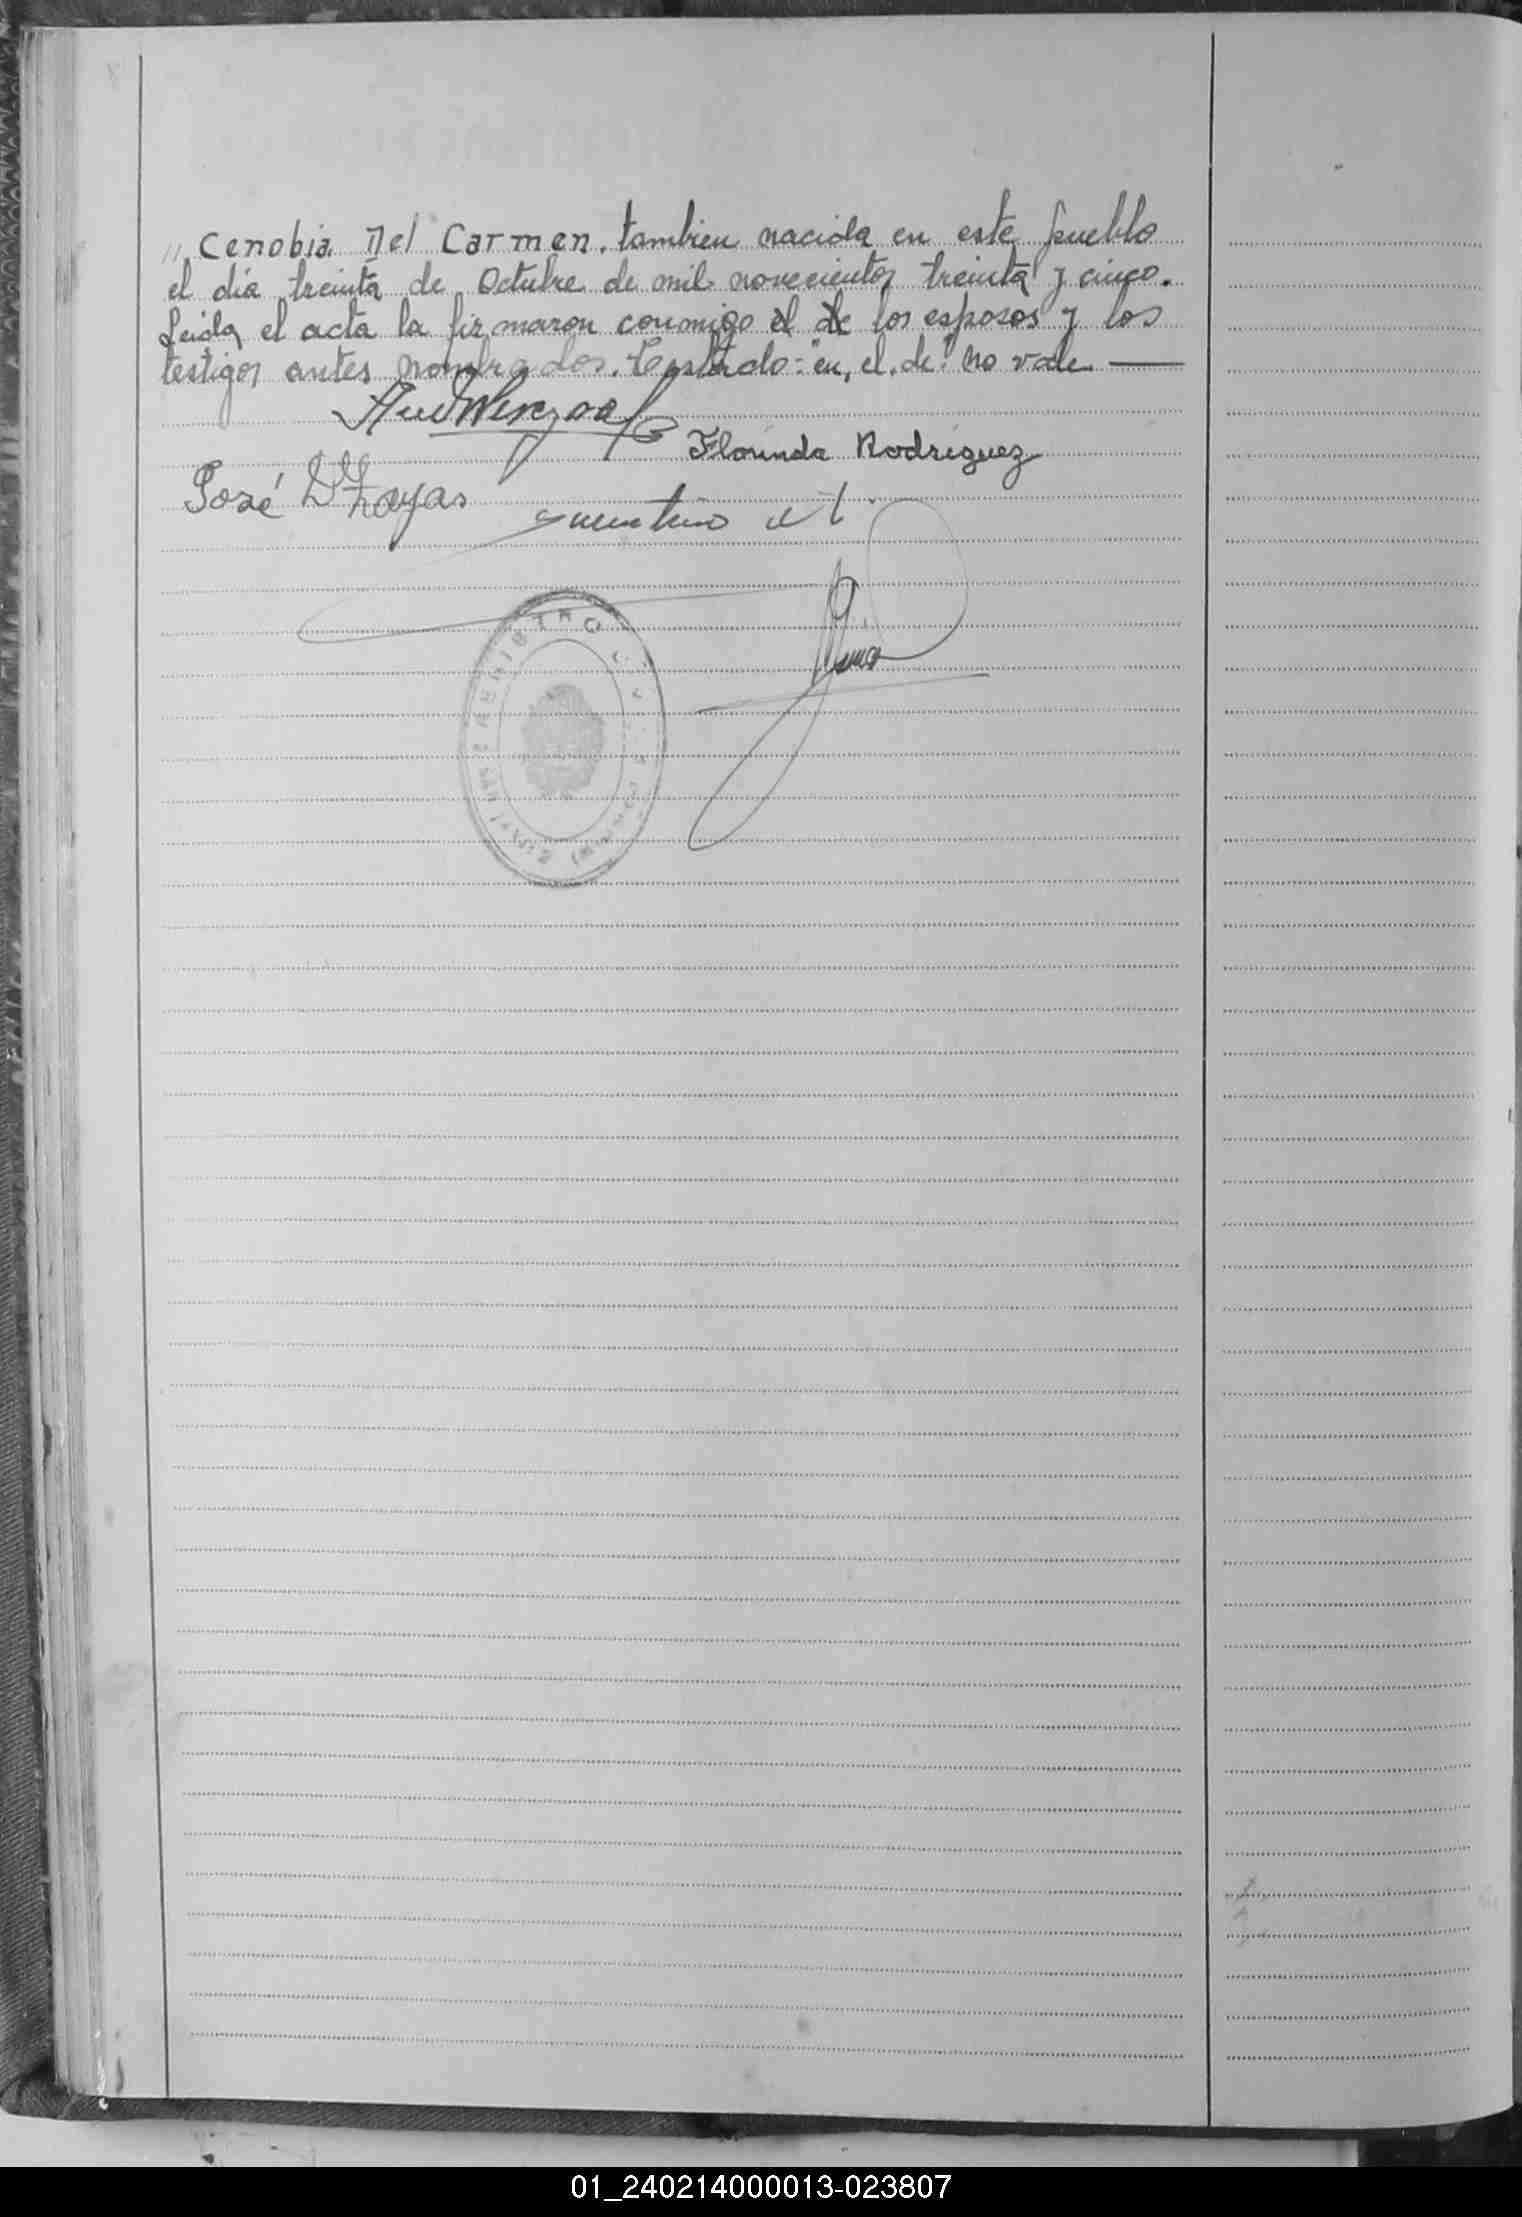 " Cenobia Del Carmen. tambien nacida en este pueblo
el día treinta de Octubre de mil novecientos treinta y cinco.
Leida el acta la firmaron conmigo el de los esposos y los
testigos antes nombrados. Testado: "en, el, de" no vale. —
Florinda Rodríguez
José D. Zayas
REGISTRO
01_240214000013-023807